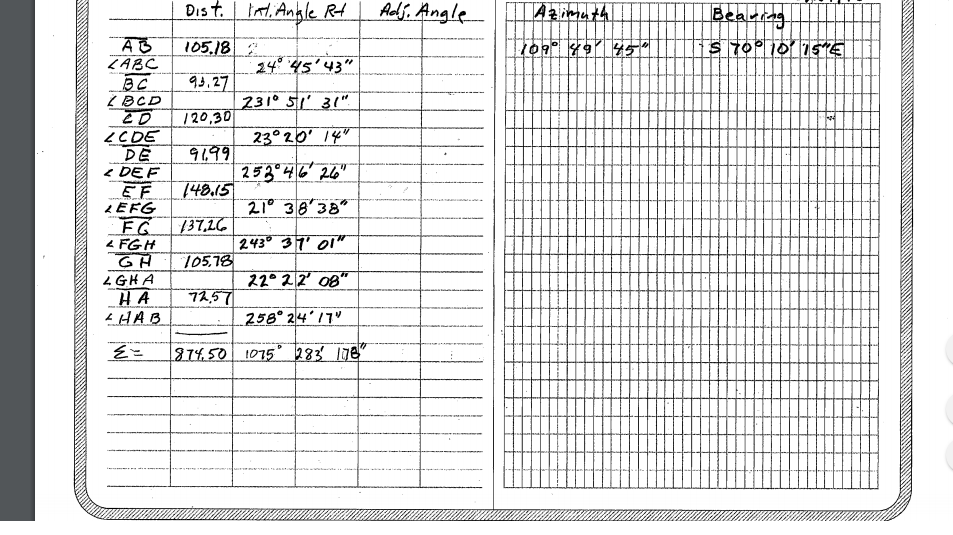 Dist. Int. Angle Rt Adj. Angle Azimuth Bearing
AB 105.18 109° 49' 45" S 70° 10' 15"E
∠ABC 24° 45' 43"
BC 93.27
∠BCD 231° 51' 31"
CD 120.30
∠CDE 23° 20' 14"
DE 91.99
∠DEF 253° 46' 26"
EF 148.15
∠EFG 21° 38' 38"
FG 137.26
∠FGH 243° 37' 01"
GH 105.78
∠GHA 22° 22' 08"
HA 72.57
∠HAB 258° 24' 17"
Σ= 874.50 1075° 283' 178"